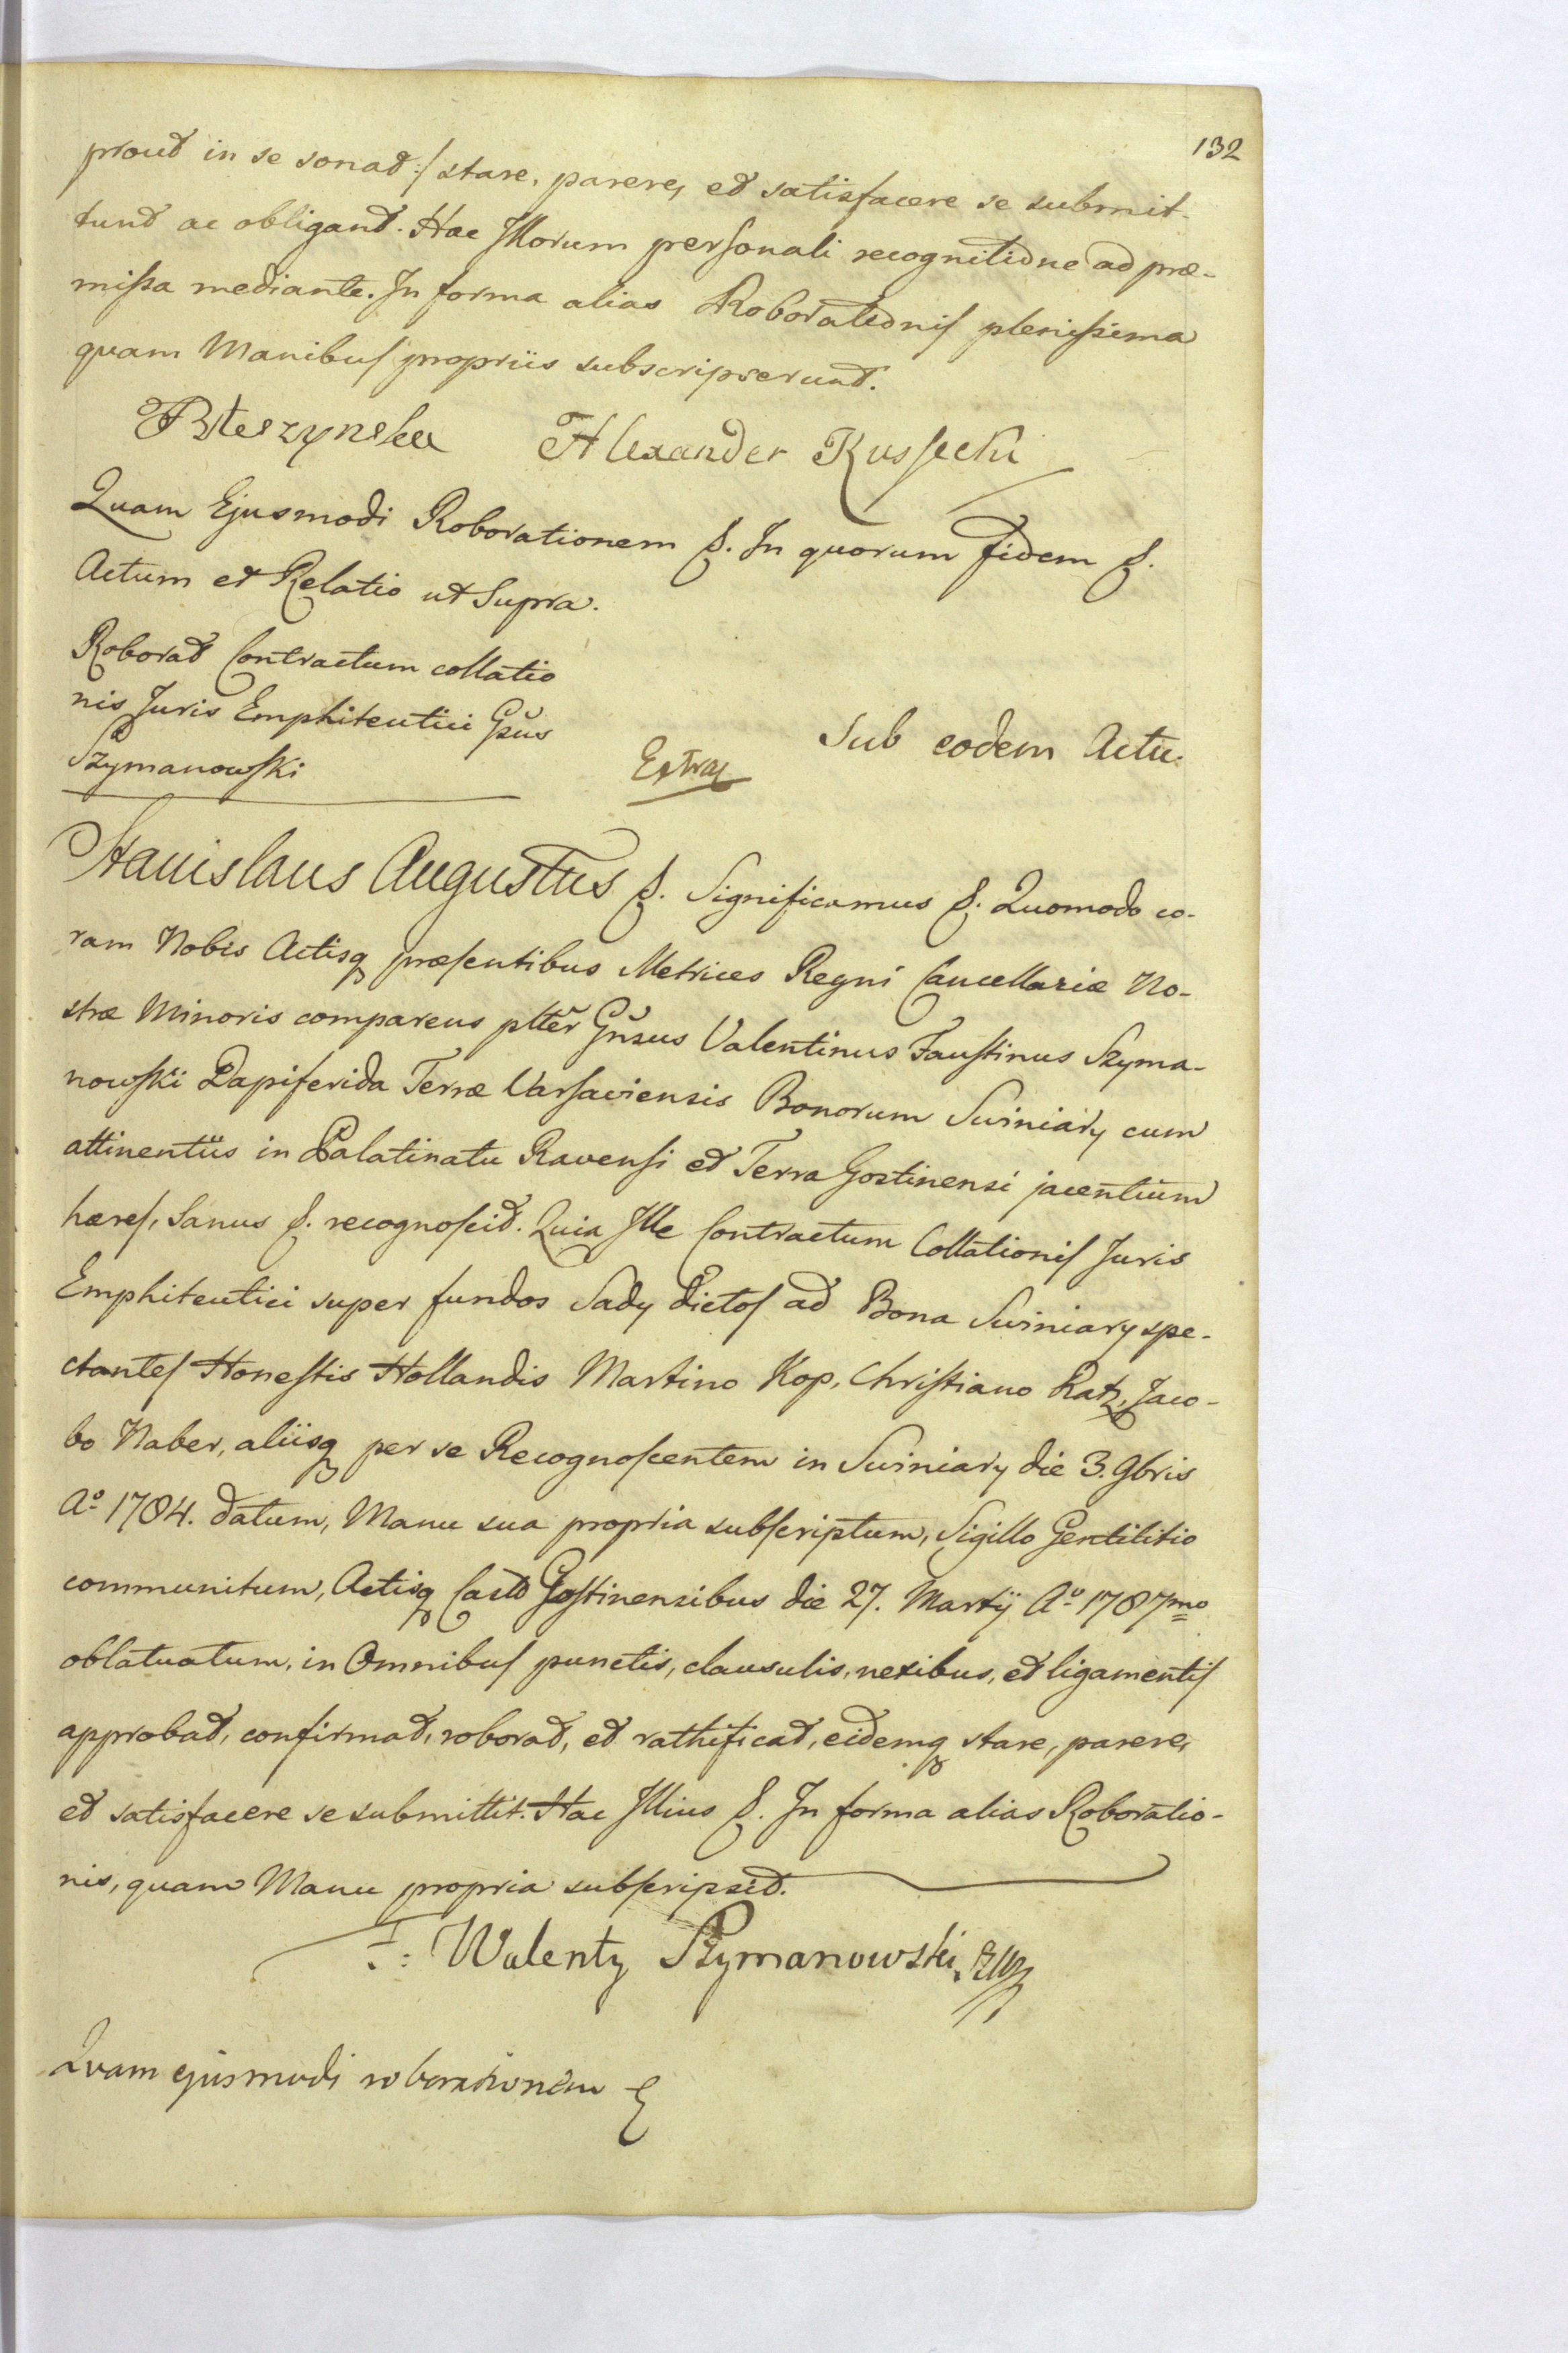 132
prout in se sonat:/ stare, parere, et satisfacere se submit-
tunt ac obligant. Hac Illorum personali recognitione ad præ-
missa mediante. In forma alias Roborationis plenissima
quam Manibus propriis subscripserunt.
Alexander Kussecki
Quam Ejusmodi Roborationem &. In quorum fidem &.
Actum et Relatio ut Supra.
Roborat Contractum collatio
nis Juris Emphiteutici Gsus
Szymanowski
Extra
Sub eodem Actu.
Stanislaus Augustus &. Significamus &. Quomodo co-
ram Nobis Actisq præsentibus Metrices Regni Cancellariæ No-
stræ Minoris comparens pltter Gnsus Valentinus Faustinus Szyma-
nowski Dapiferida Terræ Varsaviensis Bonorum Swiniary cum
attinentiis in Palatinatu Ravensi et Terra Gostinensi jacentium
hæres, Sanus &. recognoscit. Quia Ille Contractum Collationis Juris
Emphiteutici super fundos Sady dictos ad Bona Swiniary spe-
ctantes Honestis Hollandis Martino Kop, Christiano Ratz, Jaco-
bo Naber, aliisq per se Recognoscentem in Swiniary die 3. 9bris
Aº 1784. datum, Manu sua propria subscriptum, Sigillo Gentilitio
communitum, Actisq Castr Gostinensibus die 27. Martij Aº 1787mo
oblatuatum, in Omnibus punctis, clausulis, nexibus, et ligamentis
approbat, confirmat, roborat, et rathificat, eidemq stare, parere,
et satisfacere se submittit. Hac Illius &. In forma alias Roboratio-
nis, quam Manu propria subscripsit.
F: Walenty Szymanowski
Quam ejusmodi roborationem &